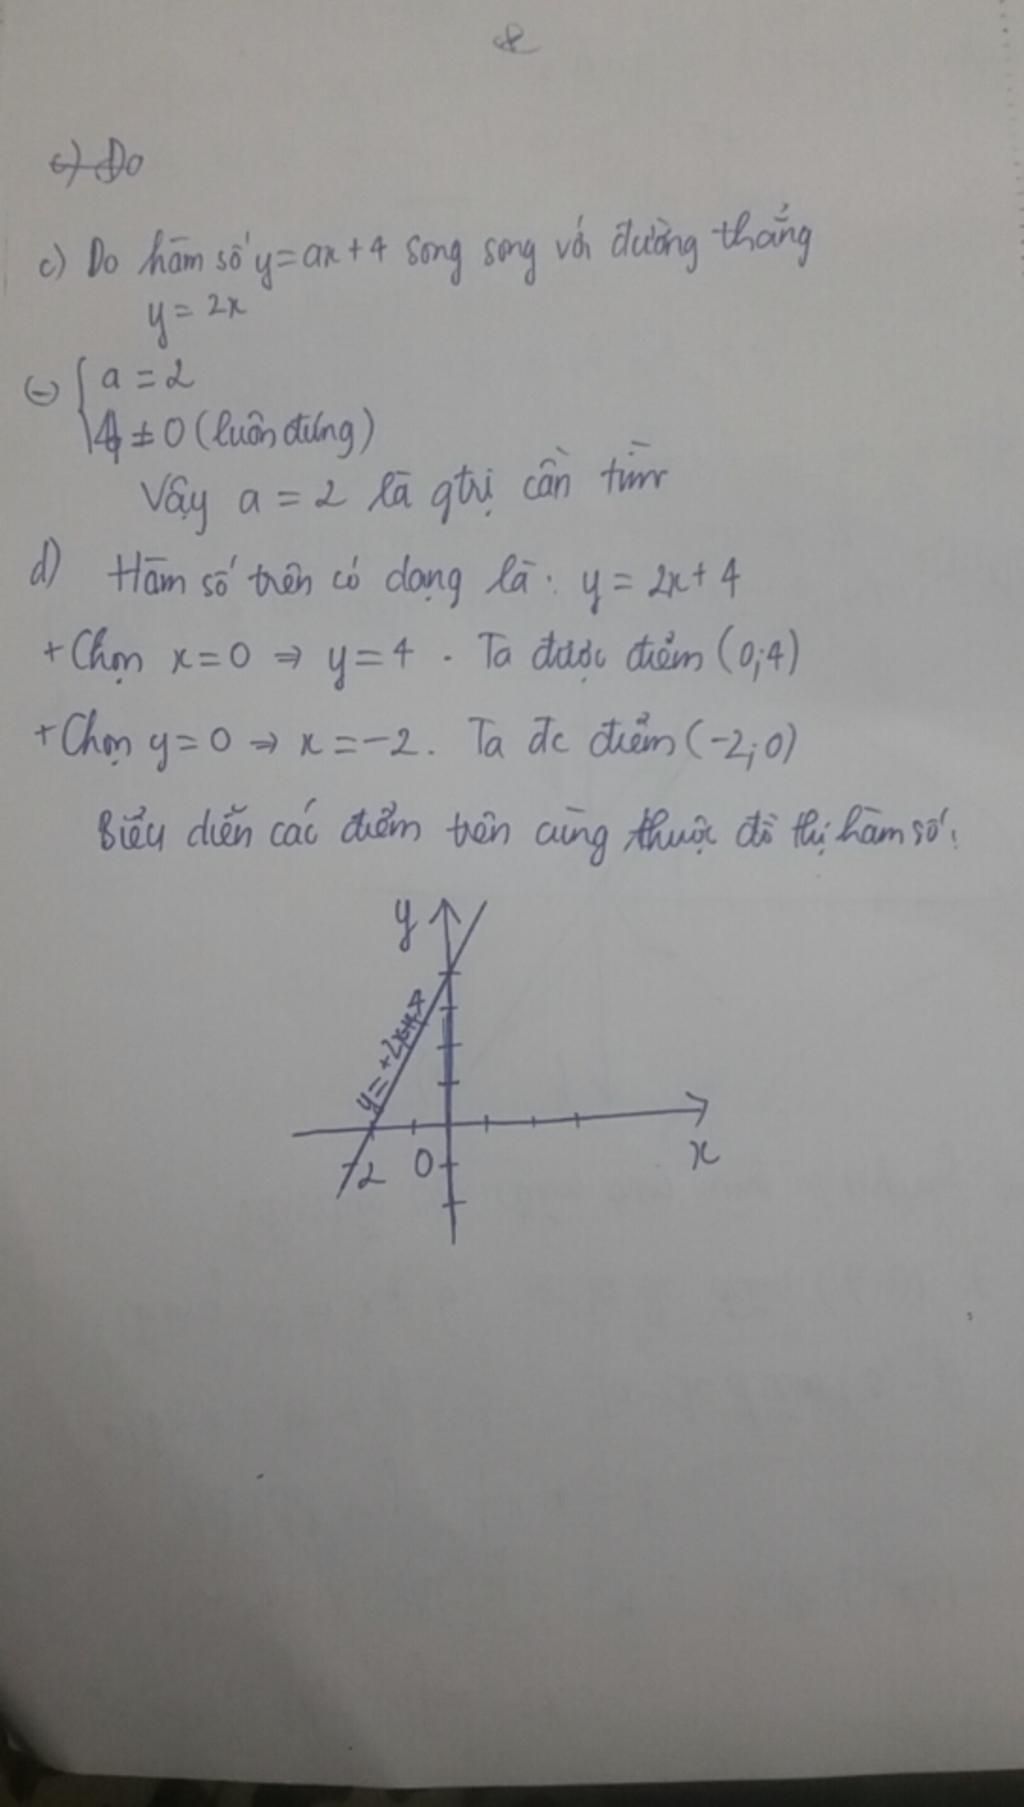 c) Do
c) Do hàm số y=ax+4 song song với đường thẳng
y = 2x
(=) { a = 2
4 ≠ 0 (luôn đúng)
Vậy a = 2 là gtrị cần tìm
d) Hàm số trên có dạng là: y = 2x+4
+ Chọn x=0 ⇒ y=4. Ta được điểm (0;4)
+ Chọn y=0 ⇒ x=-2. Ta đc điểm (-2;0)
Biểu diễn các điểm trên cùng thuộc đồ thị hàm số:
y
y=+2x+4
-2 0
x